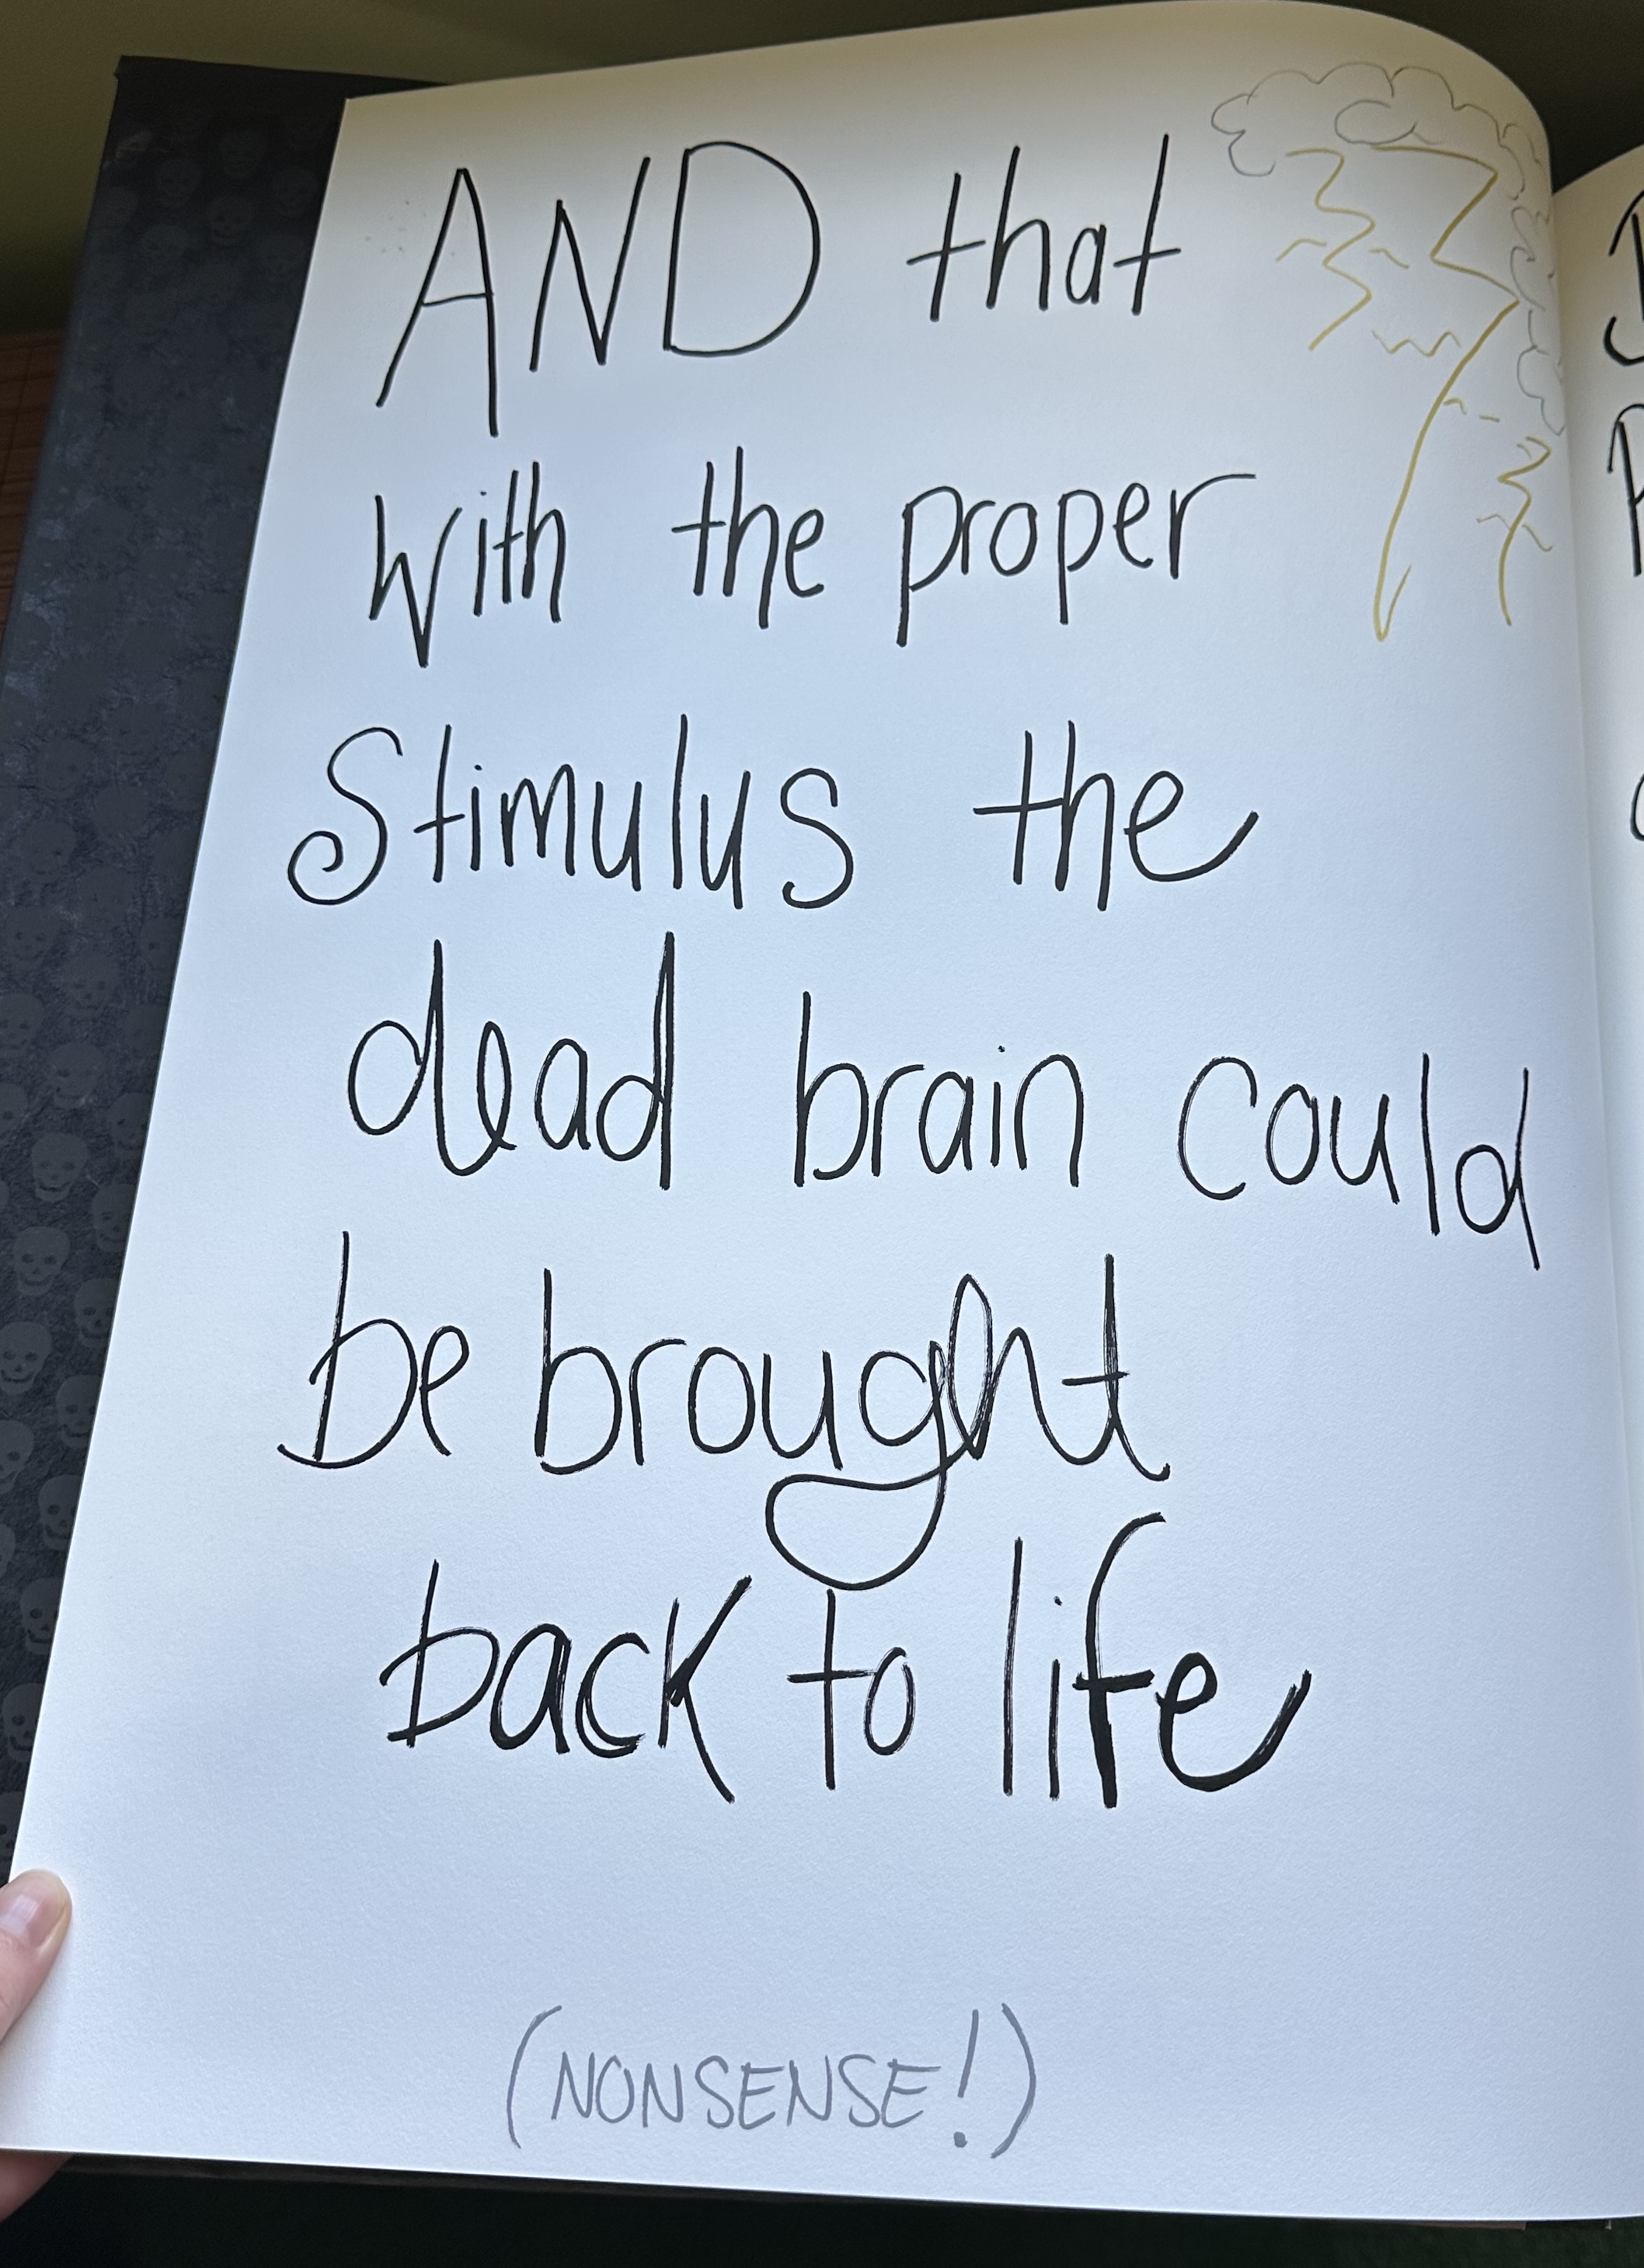 AND that
with the proper
Stimulus the
dead brain could
be brought
back to life
(NONSENSE!)